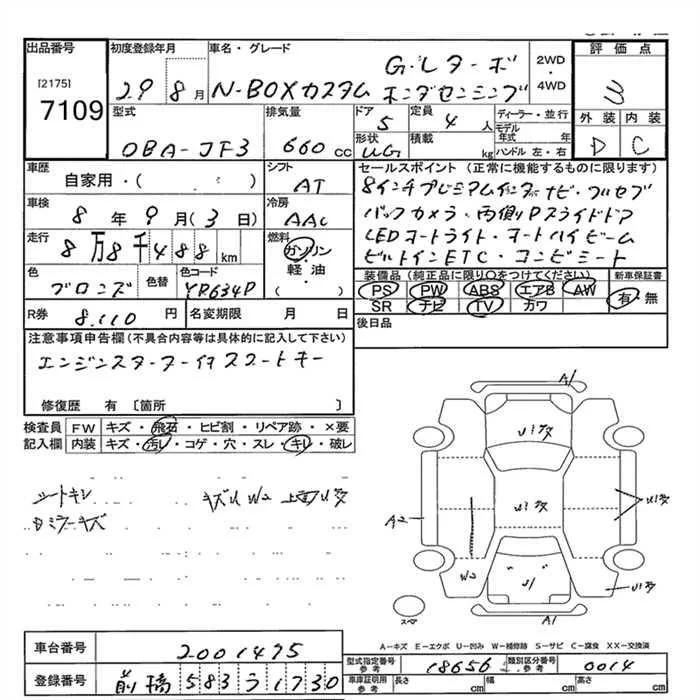 出品番号
[2175]
7109
初度登録年月
29 8月
車名・グレード
N-BOXカスタム G・Lターボ ホンダセンシング
2WD・4WD
評価点
3
外装 D
内装 C
型式
DBA-JF3
排気量
660 cc
ドア
5
定員
4 人
形状
積載 kg
ディーラー・並行
モデル年式 年
ハンドル 左・右
車歴
自家用・( )
シフト
AT
車検
8年9月(3日)
冷房
AAC
走行
8万8千488 km
燃料
ガソリン・軽油・( )
色
ブロンズ
色替
色コード
YR634P
R券
8,110 円
名変期限 月 日
セールスポイント (正常に機能するものに限ります)
8インチプレミアムインターナビ・フルセグ
バックカメラ・両側Pスライドドア
LEDオートライト・オートハイビーム
ビルトインETC・コンビシート
装備品 (純正品に限り○をつけてください)
PS PW ABS エアB AW
SR ナビ TV カワ
新車保証書
有・無
後日品
注意事項申告欄(不具合内容等は具体的に記入して下さい)
エンジンスターター付 スマートキー
修復歴 有 〔箇所 〕
検査員記入欄
FW キズ・飛石・ヒビ割・リペア跡・×要
内装 キズ・汚レ・コゲ・穴・スレ・キレ・破レ
シートキレ
キズU W2
ミラーキズ
A1
A2
W2
A1
A-キズ E-エクボ U-凹み W-補修跡 S-サビ C-腐食 XX-交換済
車台番号
2001475
登録番号
前橋 583 う 1730
型式指定番号 参考
18656
類別区分番号 参考
0014
車庫証明用 参考
長さ cm
幅 cm
高さ cm